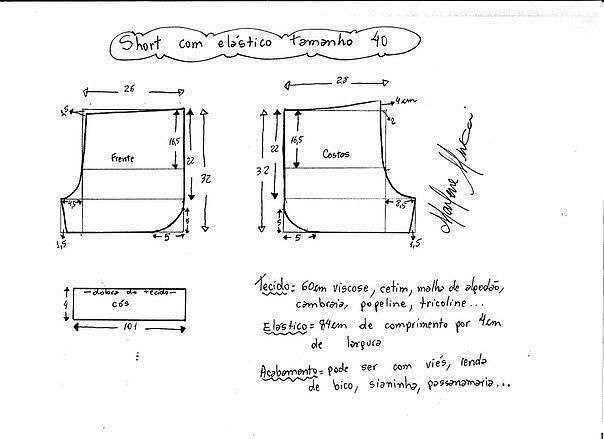 Short com elástico tamanho 40
26
28
,5
4 cm
2
16,5
22
32
Frente
32
22
16,5
Costas
4,5
5
5
1,5
5
5
8,5
1,5
Marlene Mukai
dobra do tecido
cós
4
101
Tecido = 60cm viscose, cetim, malha de algodão,
cambraia, popeline, tricoline...
Elástico = 84cm de comprimento por 4cm
de largura
Acabamento = pode ser com viés, renda
de bico, sianinha, passanamaria...